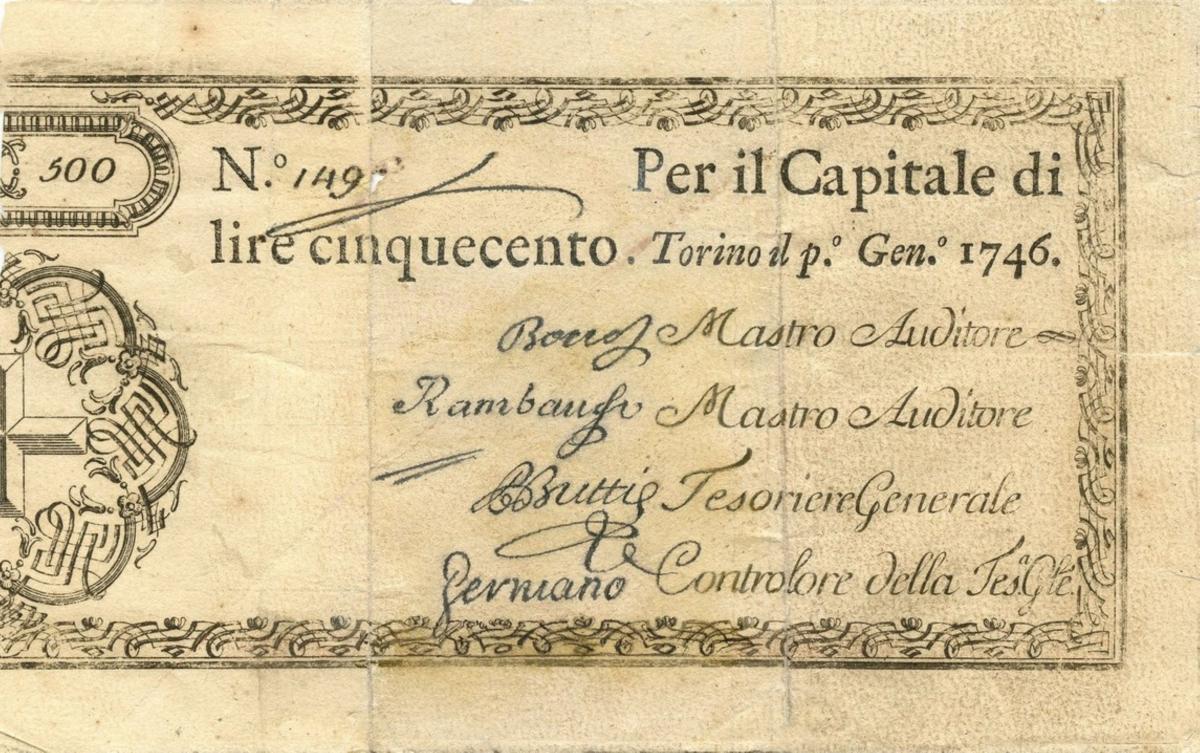 500
N.º 149
Per il Capitale di
lire cinquecento. Torino il p.º Gen.º 1746.
Mastro Auditore
Mastro Auditore
Tesoriere Generale
Germano Controlore della Tes.ª Gle.